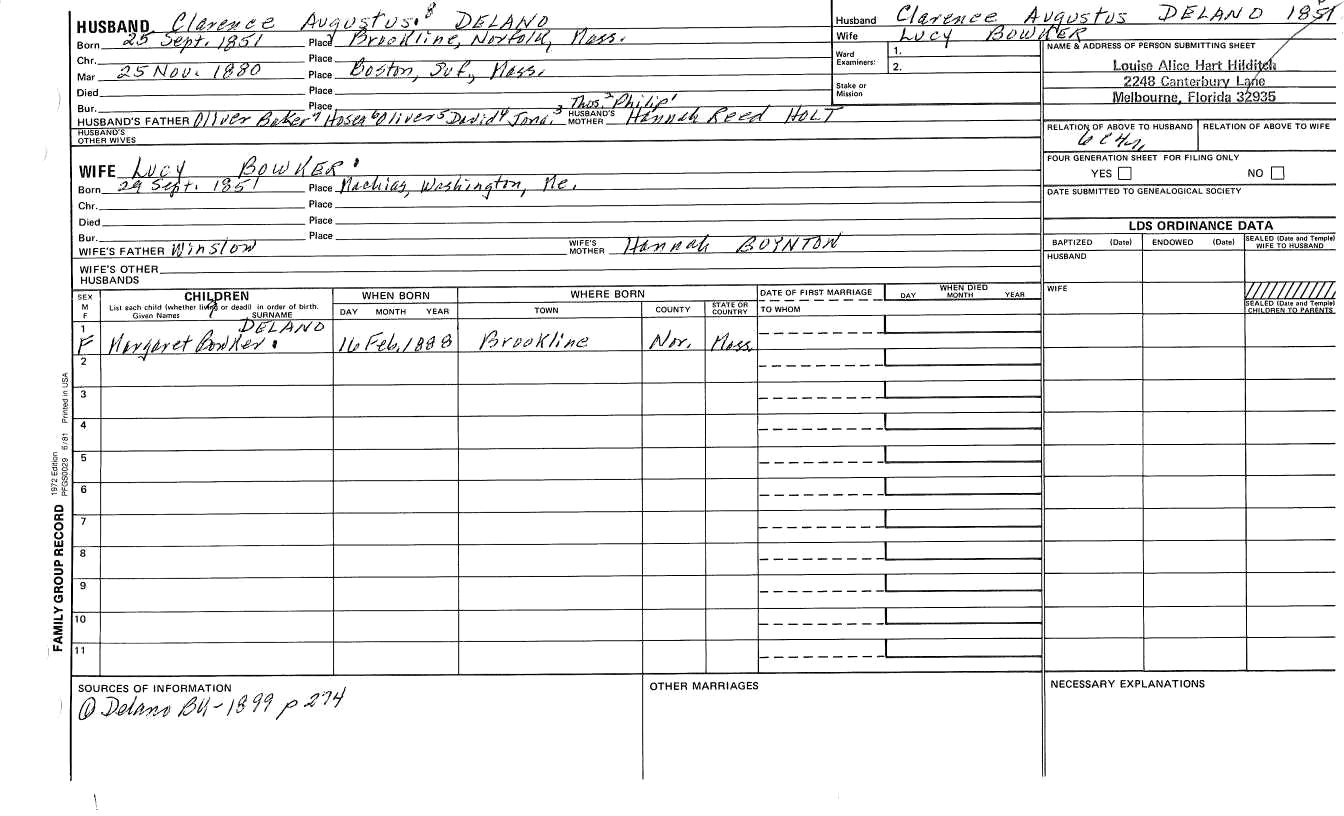 HUSBAND Clarence Augustus 8 DELANO
Born 25 Sept. 1851 Place Brookline, Norfolk, Mass.
Chr. Place
Mar 25 Nov. 1880 Place Boston, Suf., Mass.
Died Place
Bur. Place
HUSBAND'S FATHER Oliver Baker 7 Hosea 6 Oliver 5 David 4 Jona. 3 Thos. 2 Philip 1 HUSBAND'S MOTHER Hannah Reed HOLT
HUSBAND'S OTHER WIVES
Husband Clarence Augustus DELANO 1851
Wife Lucy BOWKER
Ward Examiners: 1.
2.
Stake or Mission
NAME & ADDRESS OF PERSON SUBMITTING SHEET
Louise Alice Hart Hilditch
2248 Canterbury Lane
Melbourne, Florida 32935
RELATION OF ABOVE TO HUSBAND RELATION OF ABOVE TO WIFE
FOUR GENERATION SHEET FOR FILING ONLY
YES NO
DATE SUBMITTED TO GENEALOGICAL SOCIETY
WIFE Lucy BOWKER
Born 29 Sept. 1851 Place Machias, Washington, Me.
Chr. Place
Died Place
Bur. Place
WIFE'S FATHER Winslow WIFE'S MOTHER Hannah BOYNTON
WIFE'S OTHER HUSBANDS
LDS ORDINANCE DATA
BAPTIZED (Date) ENDOWED (Date) SEALED (Date and Temple) WIFE TO HUSBAND
HUSBAND
WIFE
SEALED (Date and Temple) CHILDREN TO PARENTS
SEX M F CHILDREN List each child (whether living or dead) in order of birth. Given Names SURNAME
WHEN BORN DAY MONTH YEAR
WHERE BORN TOWN COUNTY STATE OR COUNTRY
DATE OF FIRST MARRIAGE TO WHOM
WHEN DIED DAY MONTH YEAR
1 DELANO
F Margaret Bowker 16 Feb. 1888 Brookline Nor. Mass
2
3
4
5
6
7
8
9
10
11
FAMILY GROUP RECORD 1972 Edition PFGS0029 6/81 Printed in USA
SOURCES OF INFORMATION
① Delano BU-1899 p 274
OTHER MARRIAGES
NECESSARY EXPLANATIONS